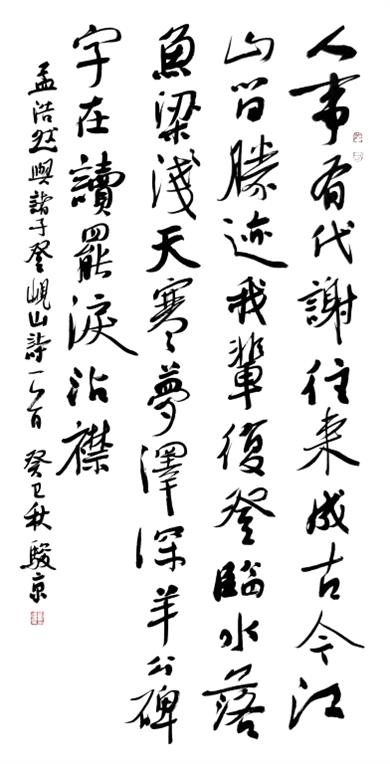 人事有代謝往来成古今江
山留勝迹我輩復登臨水落
魚梁淺天寒夢澤深羊公碑
字在讀罷淚沾襟
孟浩然與諸子登峴山詩一首 癸秋駿京